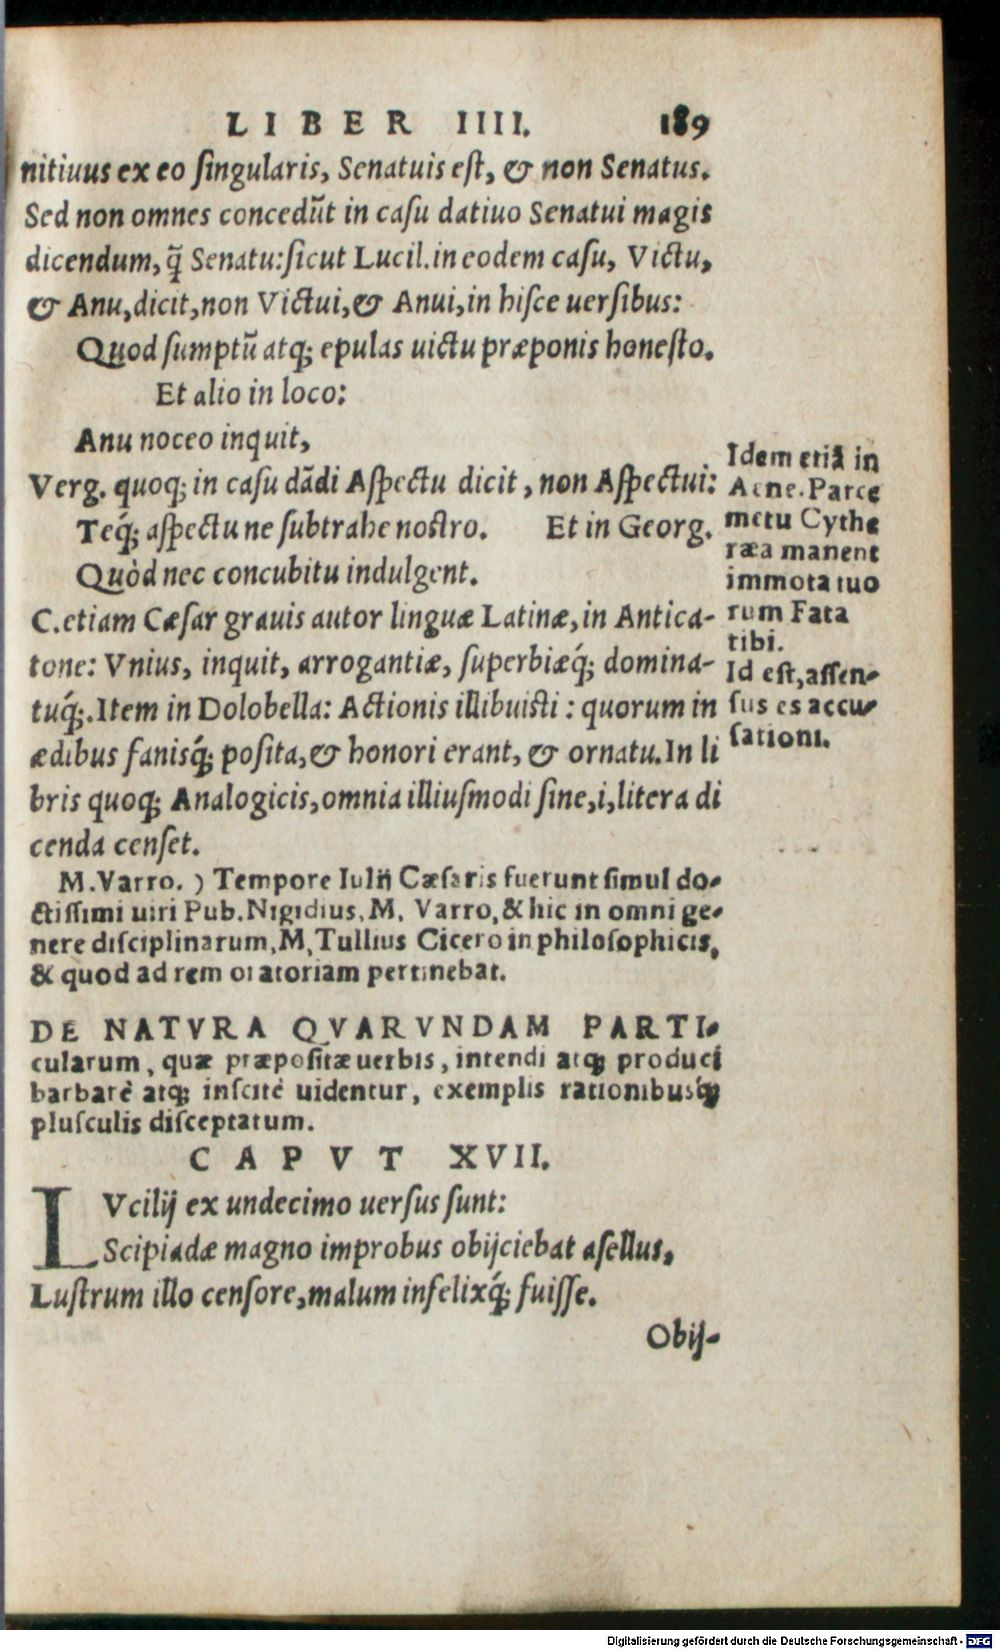 LIBER IIII. 189
nitiuus ex eo ſingularis, Senatuis eſt, & non Senatus.
Sed non omnes concedūt in caſu datiuo Senatui magis
dicendum, q̃ Senatu: ſicut Lucil. in eodem caſu, Victu,
& Anu, dicit, non Victui, & Anui, in hiſce uerſibus:
Quod ſumptū atq; epulas uictu præponis honeſto.
Et alio in loco:
Anu noceo inquit,
Verg. quoq; in caſu dādi Aſpectu dicit, non Aſpectui:
Teq́; aſpectu ne ſubtrahe nostro. Et in Georg.
Quòd nec concubitu indulgent.
C. etiam Cæſar grauis autor linguæ Latinæ, in Antica-
tone: Vnius, inquit, arrogantiæ, ſuperbiæq́; domina-
tuq́;. Item in Dolobella: Actionis illibuisti: quorum in
ædibus fanisq́; poſita, & honori erant, & ornatu. In li
bris quoq; Analogicis, omnia illiuſmodi ſine, i, litera di
cenda cenſet.
Idem etiā in
Aene. Parce
metu Cythe
ræa manent
immota tuo
rum Fata
tibi.
Id eſt, aſſen-
ſus es accu-
ſationi.
M. Varro. ) Tempore Iulij Cæſaris fuerunt ſimul do-
ctiſſimi uiri Pub. Nigidius, M. Varro, & hic in omni ge-
nere diſciplinarum, M, Tullius Cicero in philoſophicis,
& quod ad rem oratoriam pertinebat.
DE NATVRA QVARVNDAM PARTI-
cularum, quæ præpoſitæ uerbis, intendi atq; produci
barbarè atq; inſcitè uidentur, exemplis rationibusq́;
pluſculis diſceptatum.
CAPVT XVII.
LVcilij ex undecimo uerſus ſunt:
Scipiadæ magno improbus obijciebat aſellus,
Luſtrum illo cenſore, malum infelixq́; fuiſſe.
Obij-
Digitalisierung gefördert durch die Deutsche Forschungsgemeinschaft - DFG